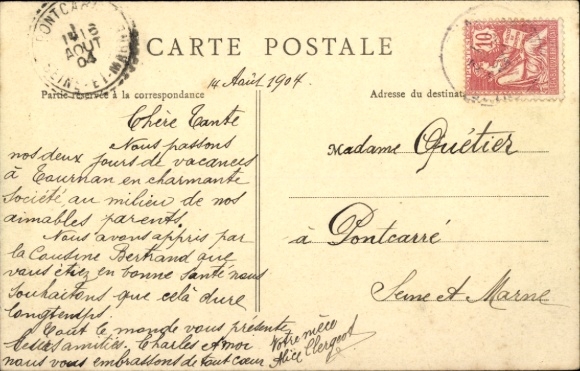 CARTE POSTALE
PONTCARRÉ
15
AOUT
04
SEINE-ET-MARNE
10
14 Août 1904.
Partie réservée à la correspondance
Adresse du destinat
Chère Tante
Nous passons
nos deux jours de vacances
à Tournan en charmante
société au milieu de nos
aimables parents.
Nous avons appris par
la Cousine Bertrand que
vous étiez en bonne santé nous
souhaitons que celà dure
longtemps.
Tout le monde vous présente
ses amitiés. Charles et moi
nous vous embrassons de tout cœur
Votre nièce
Alice Clergeot
Madame Quétier
à Pontcarré
Seine et Marne